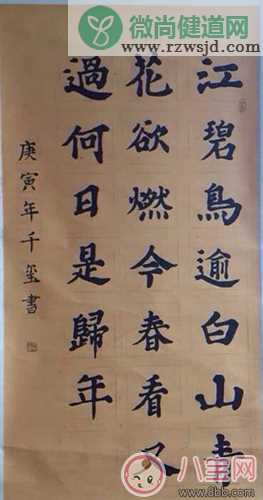 微尚健道网
www.rzwsjd.com
江碧鳥逾白山青
花欲燃今春看又
過何日是歸年
庚寅年千玺書
八宝网
www.8bb.com